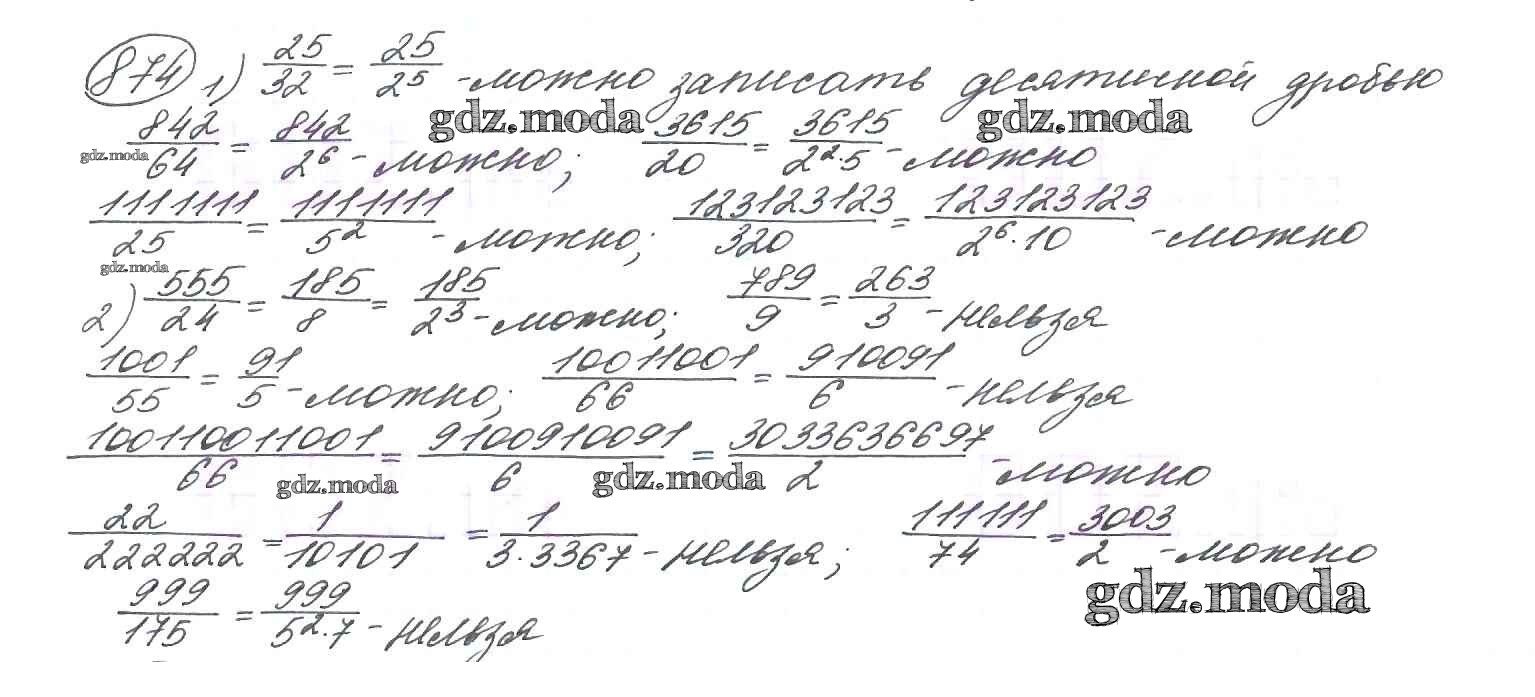 874 1) 25/32 = 25/2⁵ - можно записать десятичной дробью
842/64 = 842/2⁶ - можно; 3615/20 = 3615/2²·5 - можно
gdz.moda gdz.moda gdz.moda
1111111/25 = 1111111/5² - можно; 123123123/320 = 123123123/2⁶·10 - можно
gdz.moda
2) 555/24 = 185/8 = 185/2³ - можно; 789/9 = 263/3 - нельзя
1001/55 = 91/5 - можно; 10011001/66 = 910091/6 - нельзя
100110011001/66 = 9100910091/6 = 3033636697/2 - можно
gdz.moda gdz.moda
22/222222 = 1/10101 = 1/3·3367 - нельзя; 111111/74 = 3003/2 - можно
gdz.moda
999/175 = 999/5²·7 - нельзя